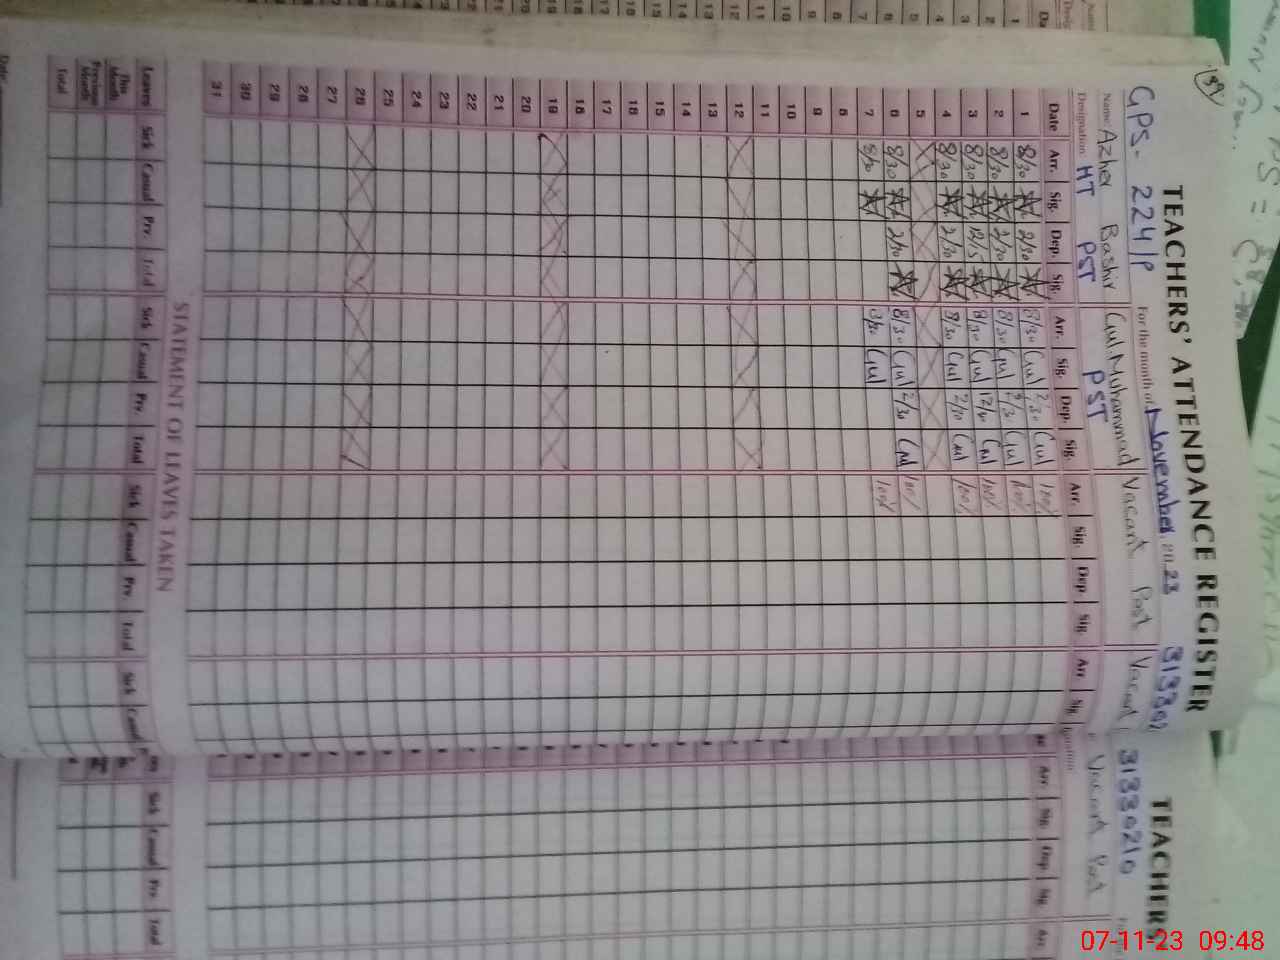 39
TEACHERS' ATTENDANCE REGISTER
GPS- 224/P For the month of November 2023 3133021
Name Azher Bashir Gul Muhammad Vacant Post Vacant
Designation HT PST PST
Date Arr. Sig. Dep. Sig. Arr. Sig. Dep. Sig. Arr. Sig. Dep. Sig. Arr. Sig.
1 8/30 2/30 8/30 Gul 2/30 Gul 100%
2 8/30 2/30 8/30 Gul 2/30 Gul 100%
3 8/30 12/15 8/30 Gul Gul 100%
4 8/30 2/30 8/30 Gul 2/30 Gul 100%
5
6 8/30 2/30 8/30 Gul 2/30 Gul 100%
7 8/30 8/30 Gul 100%
8
9
10
11
12
13
14
15
16
17
18
19
20
21
22
23
24
25
26
27
28
29
30
31
STATEMENT OF LEAVES TAKEN
Leaves Sick Casual Prv. Total Sick Casual Prv. Total Sick Casual Prv. Total Sick Casual
This Month
Previous Month
Total
TEACHERS
31330210
Vacant Post
Arr. Sig. Dep. Sig. Arr.
Sick Casual Prv. Total
07-11-23 09:48